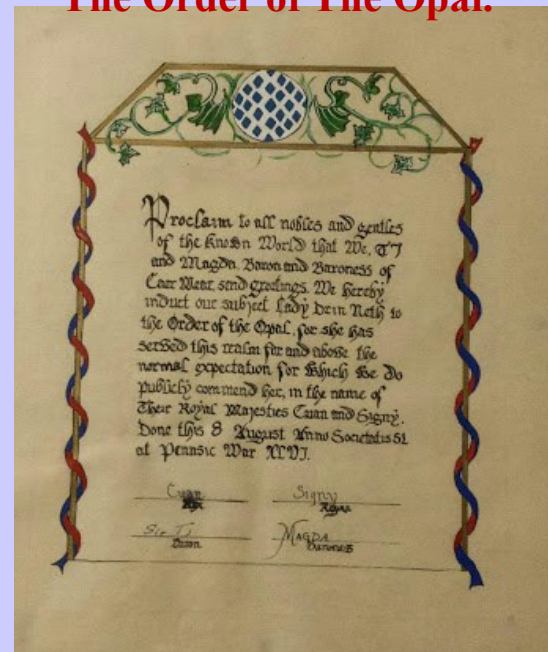 The Order of The Opal.
Proclaim to all nobles and gentles
of the Known World that We, TJ
and Magda, Baron and Baroness of
Caer Mear, send greetings. We hereby
induct our subject Lady Drin Neth to
the Order of the Opal, for she has
served this realm far and above the
normal expectation for Which We Do
publicly commend her, in the name of
Their Royal Majesties Cuan and Signy.
Done this 8 August Anno Societatis 51
at Pennsic War XLVI.
Cuan Signy
Rex Regina
Sir TJ Magda
Baron Baroness